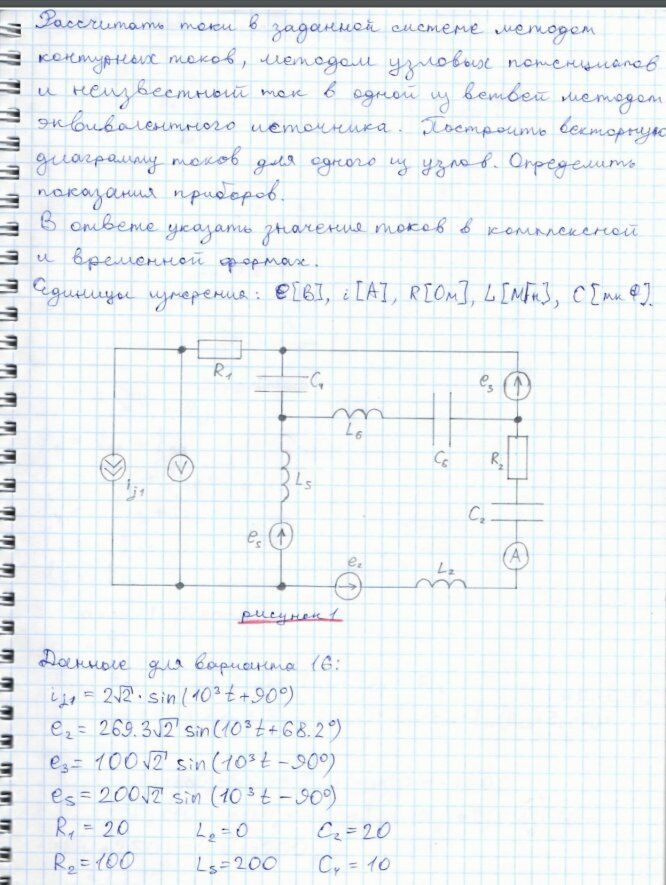 Рассчитать токи в заданной системе методом
контурных токов, методом узловых потенциалов
и неизвестный ток в одной из ветвей методом
эквивалентного источника. Построить векторную
диаграмму токов для одного из узлов. Определить
показания приборов.
В ответе указать значения токов в комплексной
и временной формах.
Единицы измерения: e[В], i[А], R[Ом], L[МГн], C[мкФ].
R1
C4
e3
L6
C6
R2
ij1
V
L5
C2
e5
A
e2
L2
рисунок 1
Данные для варианта 16:
ij1 = 2√2 · sin(10³t+90°)
e2 = 269.3√2 sin(10³t+68.2°)
e3 = 100√2 sin(10³t-90°)
e5 = 200√2 sin(10³t-90°)
R1 = 20 L2=0 C2=20
R2=100 L5=200 C4=10